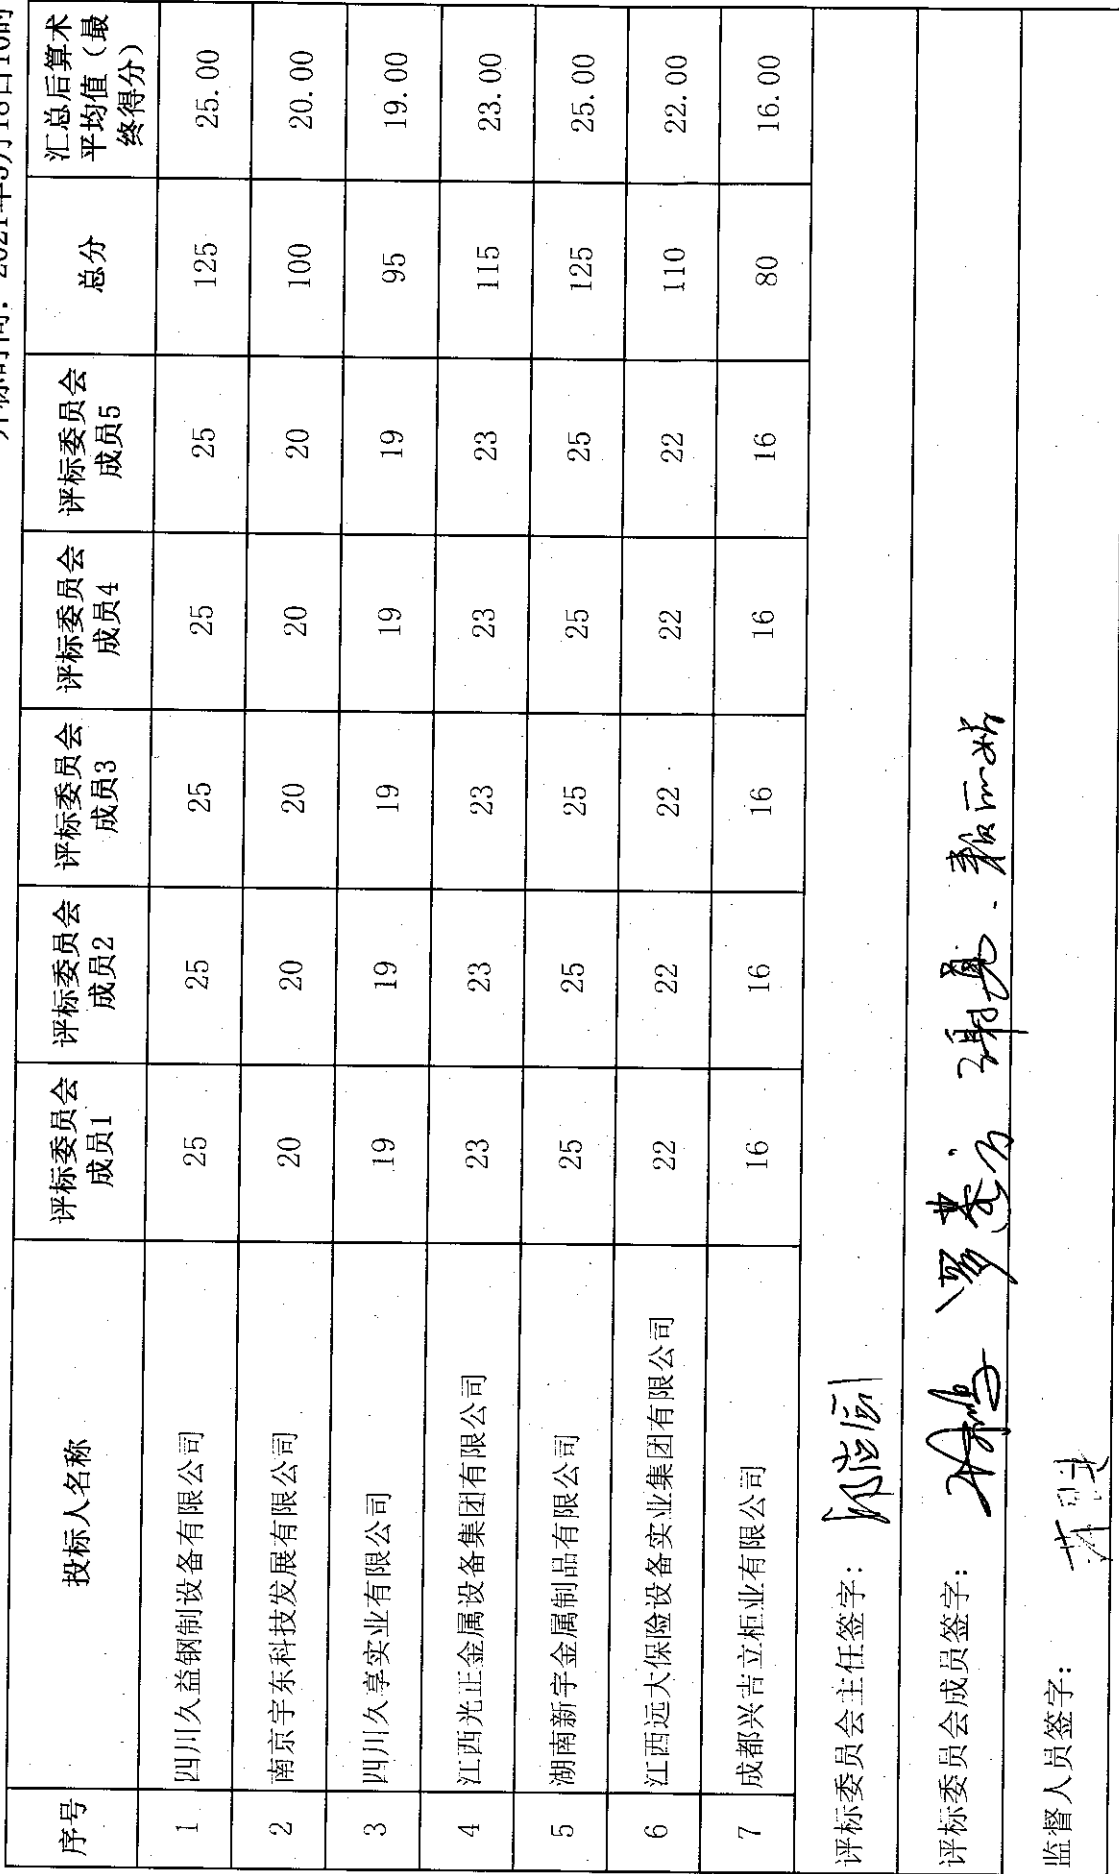 开标时间：2021年3月18日10时
序号 投标人名称 评标委员会成员1 评标委员会成员2 评标委员会成员3 评标委员会成员4 评标委员会成员5 总分 汇总后算术平均值（最终得分）
1 四川久益钢制设备有限公司 25 25 25 25 25 125 25.00
2 南京宇东科技发展有限公司 20 20 20 20 20 100 20.00
3 四川久享实业有限公司 19 19 19 19 19 95 19.00
4 江西光正金属设备集团有限公司 23 23 23 23 23 115 23.00
5 湖南新宇金属制品有限公司 25 25 25 25 25 125 25.00
6 江西远大保险设备实业集团有限公司 22 22 22 22 22 110 22.00
7 成都兴吉立柜业有限公司 16 16 16 16 16 80 16.00
评标委员会主任签字：
评标委员会成员签字：
监督人员签字：